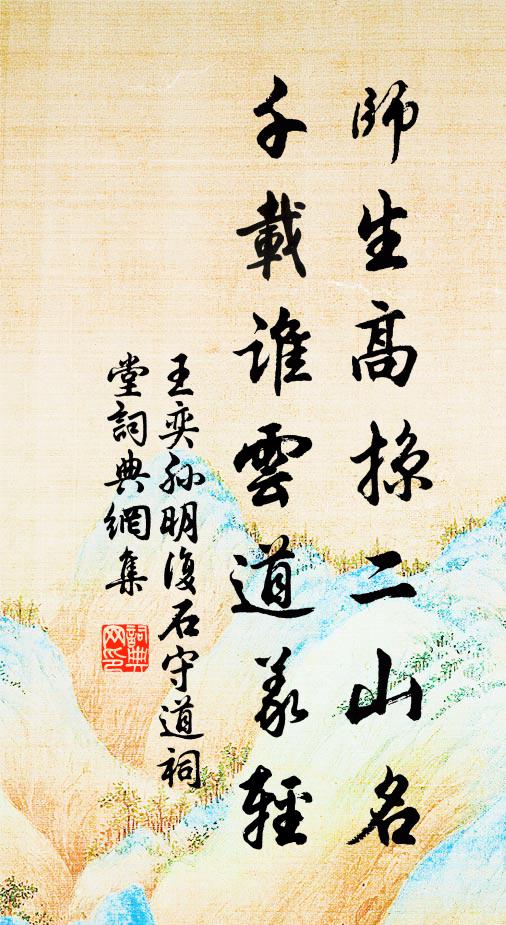 師生高操二山名
千載誰雲道義輕
王奕孫明復石守道祠
堂詞典網集
詞典
网印